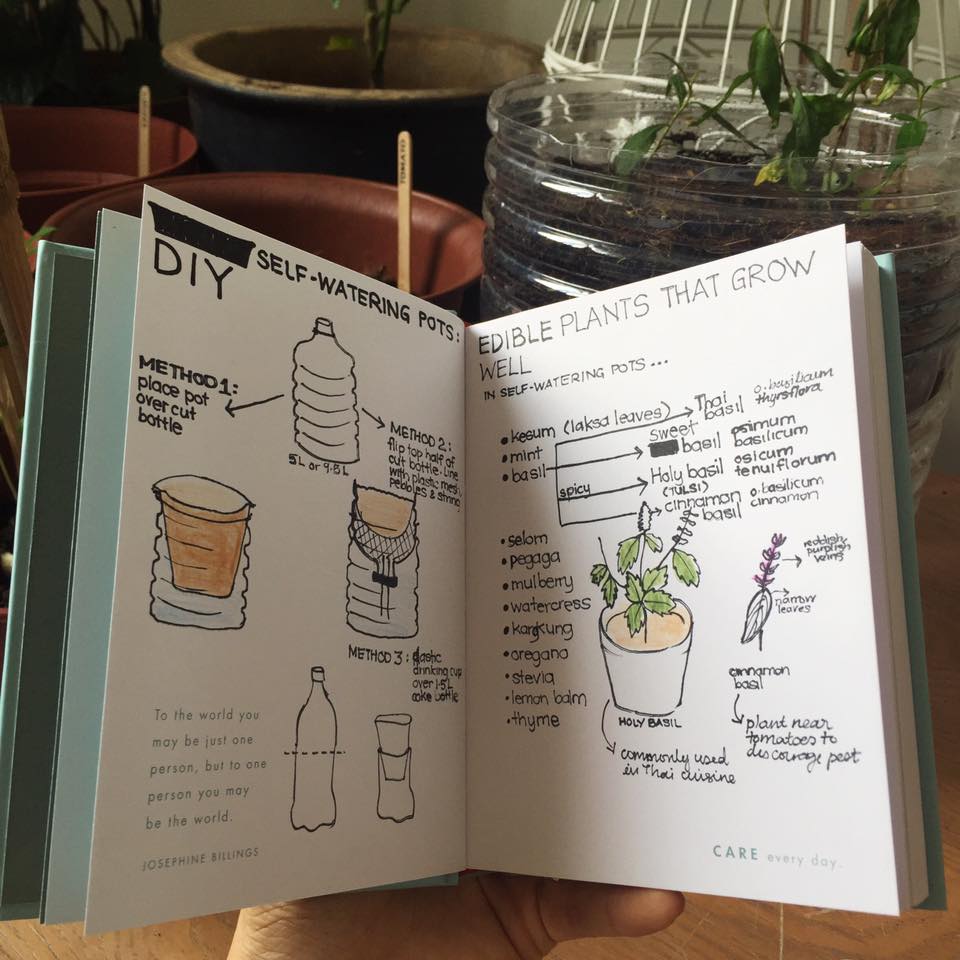 TOMATO
DIY SELF-WATERING POTS:
METHOD 1:
place pot
over cut
bottle
5L or 9.5L
METHOD 2:
flip top half of
cut bottle. Line
with plastic mesh,
pebbles & string
METHOD 3: plastic
drinking cup
over 1.5L
coke bottle
To the world you
may be just one
person, but to one
person you may
be the world.
JOSEPHINE BILLINGS
EDIBLE PLANTS THAT GROW
WELL
IN SELF-WATERING POTS...
• kesum (laksa leaves)
• mint
• basil
Thai
basil
o. basilicum
thyrsflora
sweet
basil
osimum
basilicum
spicy
Holy basil
(TULSI)
osicum
tenuiflorum
cinnamon
basil
o. basilicum
cinnamon
• selom
• pegaga
• mulberry
• watercress
• kangkung
• oregano
• stevia
• lemon balm
• thyme
HOLY BASIL
commonly used
in Thai cuisine
reddish/
purplish
veins
narrow
leaves
cinnamon
basil
plant near
tomatoes to
discourage pest
CARE every day.